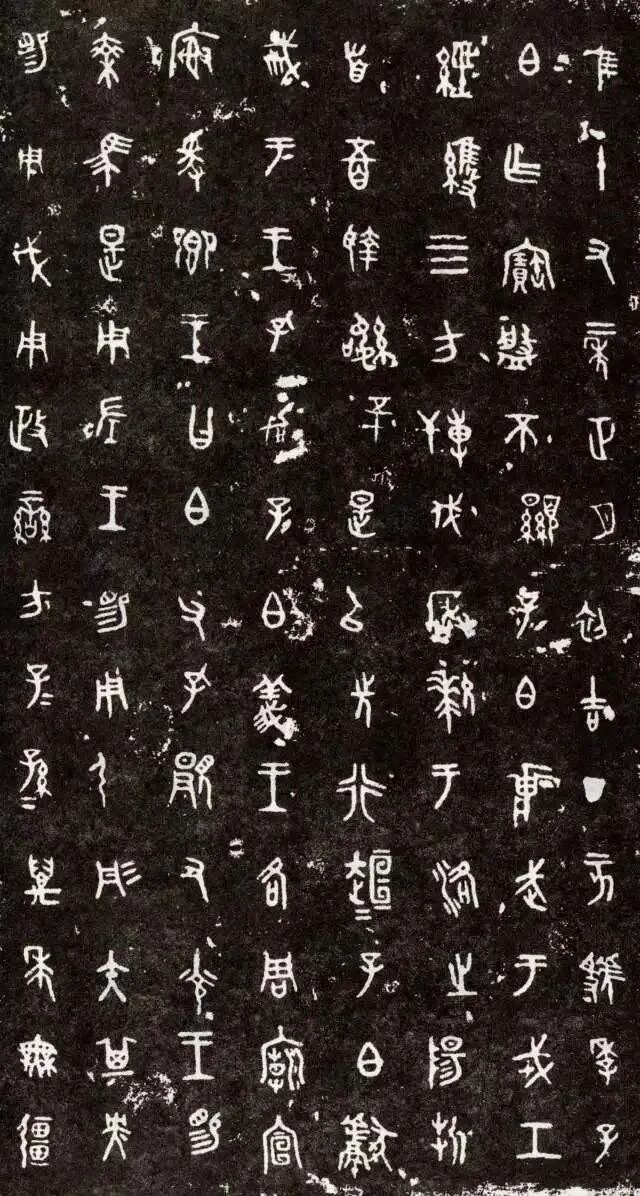 隹十又二年正月初吉丁亥虢季子
白乍寶盤不顯子白壯武于戎工
經維四方搏伐玁狁于洛之陽折
首五百執訊五十是以先行桓桓子白獻
馘于王王孔加子白義王各周廟宣
榭爰鄉王曰白父孔景又光王賜
乘馬是用左王賜用弓彤矢其央
賜用戉用政蠻方子子孫孫萬年無疆